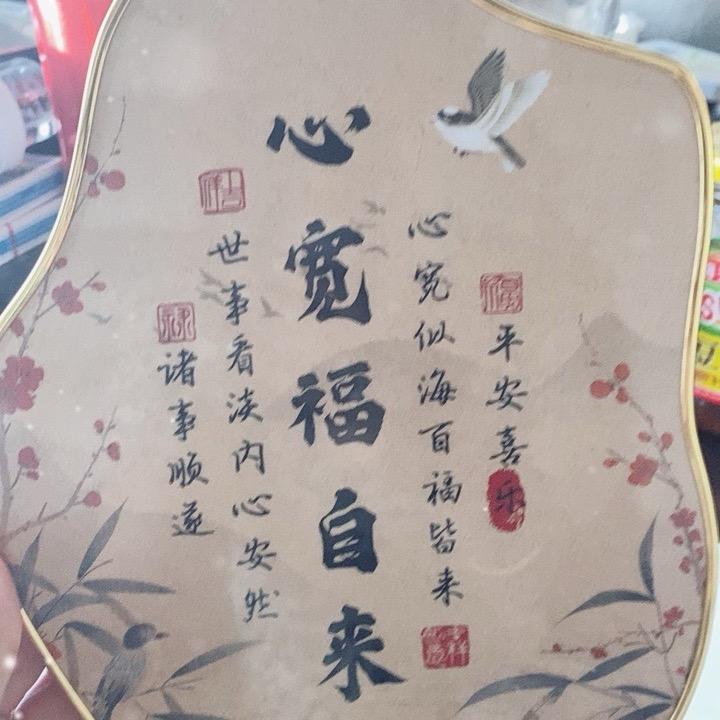 福
平安喜乐
心宽似海百福皆来
心宽福自来
吉祥
世事看淡内心安然
禄
诸事顺遂